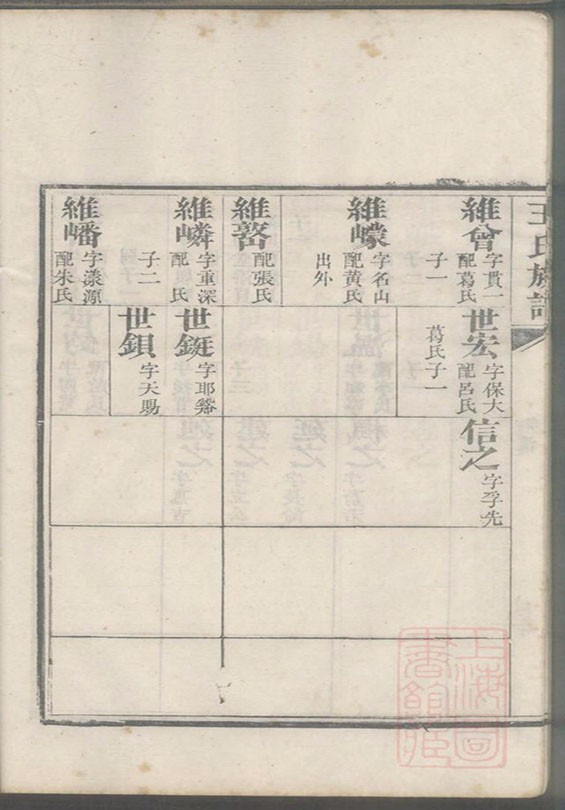 王氏族譜
維曾
字貫一
配葛氏
子一
維㠓
字名山
配黄氏
出外
維嶅
配張氏
維嶙
字重深
配氏
子二
維嶓
字漾源
配朱氏
世宏
字保大
配呂氏
葛氏子一
世鋋
字耶谿
世鋇
字天賜
信之
字孚先
上海圖書館藏